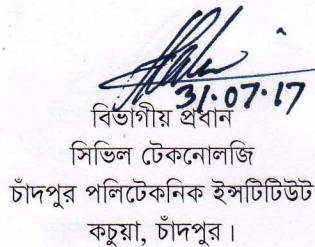 31.07.17
বিভাগীয় প্রধান
সিভিল টেকনোলজি
চাঁদপুর পলিটেকনিক ইন্সটিটিউট
কচুয়া, চাঁদপুর।